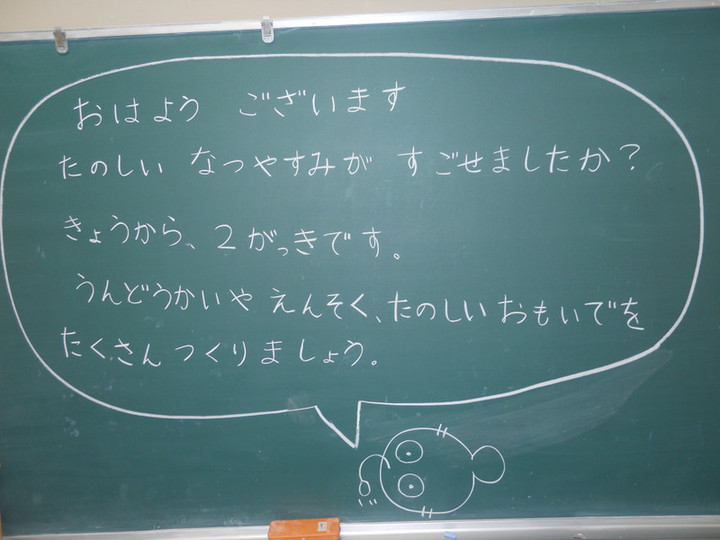 おはよう ございます
たのしい なつやすみが すごせましたか？
きょうから、２がっきです。
うんどうかいや えんそく、たのしい おもいでを
たくさん つくりましょう。